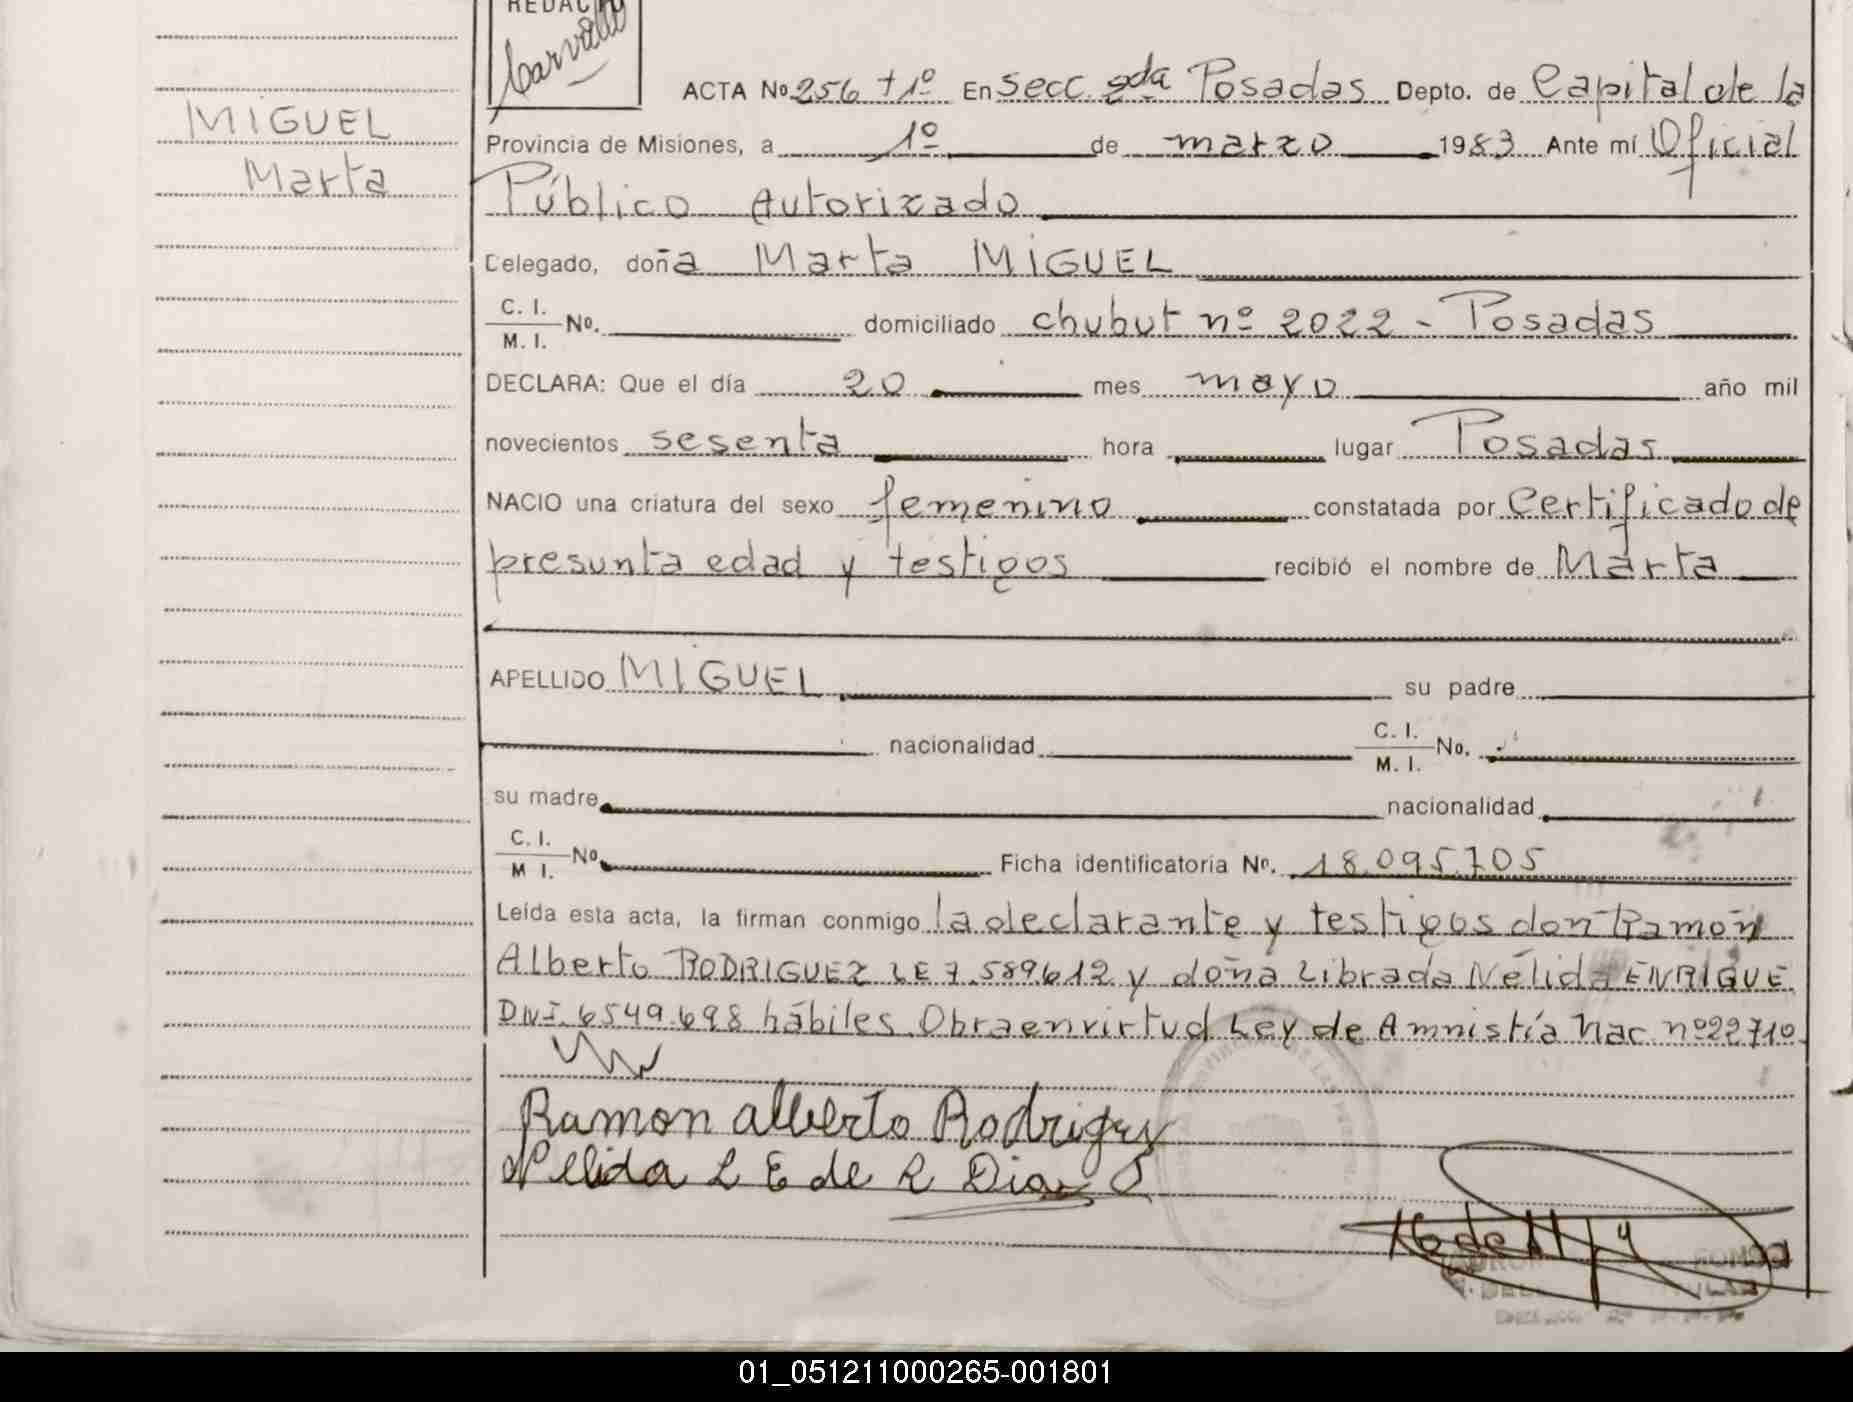 REDAC
Carvallo
MIGUEL
Marta
ACTA No 256 t 1º En secc. 2da Posadas Depto. de Capital de la
Provincia de Misiones, a 1º de marzo 1983 Ante mí Oficial
Público Autorizado
Delegado, doña Marta MIGUEL
C. I.
M. I. No. domiciliado chubut nº 2022 - Posadas
DECLARA: Que el día 20 mes mayo año mil
novecientos sesenta hora lugar Posadas
NACIO una criatura del sexo femenino constatada por Certificado de
presunta edad y testigos recibió el nombre de Marta
APELLIDO MIGUEL su padre
nacionalidad C. I.
M. I. No.
su madre nacionalidad
C. I.
M I. No Ficha identificatoria No. 18.095.705
Leída esta acta, la firman conmigo la declarante y testigos don Ramón
Alberto RODRIGUEZ LE 7.589.612 y doña Librada Nélida ENRIQUE
DNI. 6549.698 hábiles. Obra en virtud Ley de Amnistía Nac. nº 22710.
Ramon alberto Rodriguez
Nelida L E de R Diaz
01_051211000265-001801